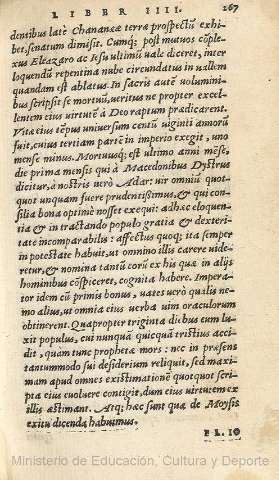 LIBER IIII. 267
dentibus latè Chananææ terræ prospectũ exhi-
bet, senatum dimisit. Cumq; post mutuos cõple-
xus Eleazaro ac Iesu ultimũ uale diceret, inter
loquendũ repentina nube circundatus in uallem
quandam est ablatus. In sacris autẽ uolumini-
bus scripsit se mortuũ, ueritus ne propter excel-
lentem eius uirtutẽ à Deo raptum prædicarent.
Vitæ eius tẽpus uniuersum centũ uiginti annorũ
fuit, cuius tertiam partẽ in imperio exegit, uno
mense minus. Mortuusq; est ultimo anni mẽse,
die prima mensis qui à Macedonibus Dystrus
dicitur, à nostris uerò Adar: uir omniũ quot-
quot unquam fuere prudentissimus, & qui con-
silia bona optimè nosset exequi: adhæc eloquen-
tia & in tractando populo gratia & dexteri-
tate incomparabilis: affectus quoq; ita semper
in potestate habuit, ut omnino illis carere uide-
retur, & nomina tantũ eorũ ex his quæ in alijs
hominibus cõspiceret, cognita habere. Impera-
tor idem cũ primis bonus, uates uerò qualis ne-
mo alius, ut omnia eius uerba uim oraculorum
obtinerent. Quapropter triginta diebus eum lu-
xit populus, cui nunquã quicquã tristius acci-
dit, quam tunc prophetæ mors: nec in præsens
tantummodo sui desiderium reliquit, sed maxi-
mam apud omnes existimationẽ quotquot scri-
pta eius euoluere contigit, dum eius uirtutem ex
illis æstimant. Atq; hæc sunt quæ de Moysis
exitu dicenda habuimus.
FL. IO
Ministerio de Educación, Cultura y Deporte